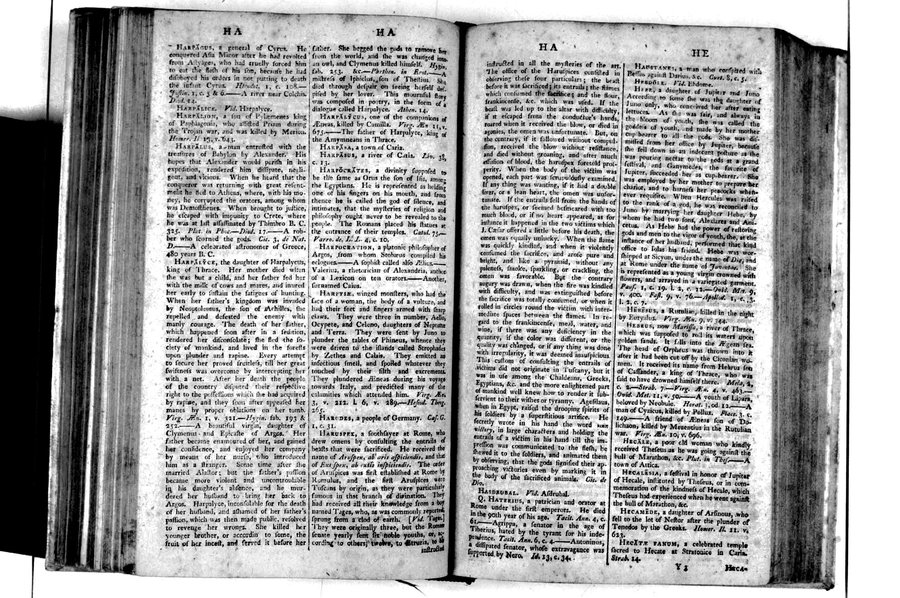 HA
HA
HARPĂGUS, a general of Cyrus. He
conquered Aſia Minor after he had revolted
from Aſtyages, who had cruelly forced him
to eat the fleſh of his ſon, becauſe he had
diſobeyed his orders in not putting to death
the infant Cyrus. Herodot. 1, c. 108.—
Juſtin. 1, c. 5 & 6.——A river near Colchis.
Diod. 14.
HARPALĬCE. Vid. Harpalyce.
HARPALION, a ſon of Pylæmenes king
of Paphlagonia, who aſſiſted Priam during
the Trojan war, and was killed by Merion.
Homer. Il. 13, v. 643.
HARPĂLUS, a man entruſted with the
treaſures of Babylon by Alexander. His
hopes that Alexander would periſh in his
expedition, rendered him diſſipate, negli-
gent, and vicious. When he heard that the
conqueror was returning with great reſent-
ment he fled to Athens, where, with his mo-
ney, he corrupted the orators, among whom
was Demoſthenes. When brought to juſtice,
he eſcaped with impunity to Crete, where
he was at laſt aſſaſſinated by Thimbro B. C.
325. Plut. in Phoc.—Diod. 17.——A rob-
ber who ſcorned the gods. Cic. 3. de Nat.
D.——A celebrated aſtronomer of Greece,
480 years B. C.
HARPALY̆CE, the daughter of Harpalycus,
king of Thrace. Her mother died when
ſhe was but a child, and her father fed her
with the milk of cows and mares, and inured
her early to ſuſtain the fatigues of hunting.
When her father's kingdom was invaded
by Neoptolemus, the ſon of Achilles, ſhe
repelled and defeated the enemy with
manly courage. The death of her father,
which happened ſoon after in a ſedition,
rendered her diſconſolate; ſhe fled the ſo-
ciety of mankind, and lived in the foreſts
upon plunder and rapine. Every attempt
to ſecure her proved fruitleſs, till her great
ſwiftneſs was overcome by intercepting her
with a net. After her death the people
of the country diſputed their reſpective
right to the poſſeſſions which ſhe had acquired
by rapine, and they ſoon after appeaſed her
manes by proper oblations on her tomb.
Virg. Æn. 1, v. 321.—Hygin. fab. 193 &
252.——A beautiful virgin, daughter of
Clymenus and Epicaſte of Argos. Her
father became enamoured of her, and gained
her confidence, and enjoyed her company
by means of her nurſe, who introduced
him as a ſtranger. Some time after ſhe
married Alaſtor; but the father's paſſion
became more violent and uncontroulable
in his daughter's abſence, and he mur-
dered her huſband to bring her back to
Argos. Harpalyce, inconſolable for the death
of her huſband, and aſhamed of her father's
paſſion, which was then made public, reſolved
to revenge her wrongs. She killed her
younger brother, or according to ſome, the
fruit of her inceſt, and ſerved it before her
father. She begged the gods to remove her
from the world, and ſhe was changed into
an owl, and Clymenus killed himſelf. Hygin.
fab. 253. &c.—Parthen. in Erot.——A
miſtreſs of Iphiclus, ſon of Theſtius. She
died through deſpair on ſeeing herſelf deſ-
piſed by her lover. This mournful ſtory
was compoſed in poetry, in the form of a
dialogue called Harpalyce. Athen. 14.
HARPALY̆CUS, one of the companions of
Æneas, killed by Camilla. Virg. Æn. 11, v.
675.——The father of Harpalyce, king of
the Amymneans in Thrace.
HARPĂSA, a town of Caria.
HARPĂSUS, a river of Caria. Liv. 38,
c. 13.
HARPŎCRĂTES, a divinity ſuppoſed to
be the ſame as Orus the ſon of Iſis, among
the Egyptians. He is repreſented as holding
one of his fingers on his mouth, and from
thence he is called the god of ſilence, and
intimates, that the myſteries of religion and
philoſophy ought never to be revealed to the
people. The Romans placed his ſtatues at
the entrance of their temples. Catul. 75.—
Varro. de, L. L. 4, c. 10.
HARPOCRATION, a platonic philoſopher of
Argos, from whom Stobæus compiled his
eclogues.——A ſophiſt called alſo Ælius.—
Valerius, a rhetorician of Alexandria, author
of a Lexicon on ten orators.——Another,
ſurnamed Caius.
HARPYIÆ, winged monſters, who had the
face of a woman, the body of a vulture, and
had their feet and fingers armed with ſharp
claws. They were three in number, Aello,
Ocypete, and Celeno, daughters of Neptune
and Terra. They were ſent by Juno to
plunder the tables of Phineus, whence they
were driven to the iſlands called Strophades
by Zethes and Calais. They emitted an
infectious ſmell, and ſpoiled whatever they
touched by their filth and excrements.
They plundered Æneas during his voyage
towards Italy, and predicted many of the
calamities which attended him. Virg. Æn.
3, v. 212. l. 6, v. 289.—Heſiod. Theog.
265.
HARUDES, a people of Germany. Cæſ. G.
1, c. 31.
HARUSPEX, a ſoothſayer at Rome, who
drew omens by conſulting the entrails of
beaſts that were ſacrificed. He received the
name of Aruſpex, ab aris aſpiciendis, and that
of Extiſpex, ab extis inſpiciendis. The order
of Aruſpices was firſt eſtabliſhed at Rome by
Romulus, and the firſt Aruſpices were
Tuſcans by origin, as they were particularly
famous in that branch of divination. They
had received all their knowledge from a boy
named Tages, who, as was commonly reported,
ſprung from a clod of earth. [Vid. Tages.]
They were originally three, but the Roman
ſenate yearly ſent ſix noble youths, or, ac-
cording to others, twelve, to Etruria, to be
inſtructed
HA
HE
inſtructed in all the myſteries of the art.
The office of the Haruſpices conſiſted in
obſerving theſe four particulars; the beaſt
before it was ſacrificed; its entrails; the flames
which conſumed the ſacrifice; and the flour,
frankincenſe, &c. which was uſed. If the
beaſt was led up to the altar with difficulty,
if it eſcaped from the conductor's hands,
roared when it received the blow, or died in
agonies, the omen was unfortunate. But, on
the contrary, if it followed without compul-
ſion, received the blow without reſiſtance,
and died without groaning, and after much
effuſion of blood, the haruſpex foretold proſ-
perity. When the body of the victim was
opened, each part was ſcrupulouſly examined.
If any thing was wanting, if it had a double
liver, or a lean heart, the omen was unfor-
tunate. If the entrails fell from the hands of
the haruſpex, or ſeemed beſmeared with too
much blood, or if no heart appeared, as for
inſtance it happened in the two victims which
J. Cæſar offered a little before his death, the
omen was equally unlucky. When the flame
was quickly kindled, and when it violently
conſumed the ſacrifice, and aroſe pure and
bright, and like a pyramid, without any
paleneſs, ſmoke, ſparkling, or crackling, the
omen was favorable. But the contrary
augury was drawn, when the fire was kindled
with difficulty, and was extinguiſhed before
the ſacrifice was totally conſumed, or when it
rolled in circles round the victim with inter-
mediate ſpaces between the flames. In re-
gard to the frankincenſe, meal, water, and
wine, if there was any deficiency in the
quantity, if the color was different, or the
quality was changed, or if any thing was done
with irregularity, it was deemed inauſpicious.
This cuſtom of conſulting the entrails of
victims did not originate in Tuſcany, but it
was in uſe among the Chaldeans, Greeks,
Egyptians, &c. and the more enlightened part
of mankind well knew how to render it ſub-
ſervient to their wiſhes or tyranny. Ageſilaus,
when in Egypt, raiſed the drooping ſpirits of
his ſoldiers by a ſuperſtitious artifice. He
ſecretly wrote in his hand the word νικη
victory, in large characters and holding the
entrails of a victim in his hand till the im-
preſſion was communicated to the fleſh, he
ſhewed it to the ſoldiers, and animated them
by obſerving, that the gods ſignified their ap-
proaching victories even by marking it in
the body of the ſacrificed animals. Cic. de
Div.
HASDRUBAL. Vid. Aſdrubal.
Q. HATERIUS, a patrician and orator at
Rome under the firſt emperors. He died
in the 90th year of his age. Tacit. Ann. 4, c.
61.——Agrippa, a ſenator in the age of
Tiberius, hated by the tyrant for his inde-
pendence. Tacit. Ann. 6, c. 4.——Antoninus,
a diſſipated ſenator, whoſe extravagance was
ſupported by Nero. Id. 13, c. 34.
HAUSTANES, a man who conſpired with
Beſſus againſt Darius, &c. Curt. 8, c. 5.
HEBDŎLE. Vid. Ebdome.
HEBE, a daughter of Jupiter and Juno.
According to ſome ſhe was the daughter of
Juno only, who conceived her after eating
lettuces. As ſhe was fair, and always in
the bloom of youth, ſhe was called the
goddeſs of youth, and made by her mother
cup-bearer to all the gods. She was diſ-
miſſed from her office by Jupiter, becauſe
ſhe fell down in an indecent poſture as ſhe
was pouring nectar to the gods at a grand
feſtival, and Ganymedes, the favorite of
Jupiter, ſucceeded her as cup-bearer. She
was employed by her mother to prepare her
chariot, and to harneſs her peacocks when-
ever requiſite. When Hercules was raiſed
to the rank of a god, he was reconciled to
Juno by marrying her daughter Hebe, by
whom he had two ſons, Alexiares and Ani-
cetus. As Hebe had the power of reſtoring
gods and men to the vigor of youth, ſhe, at the
inſtance of her huſband, performed that kind
office to Iolas his friend. Hebe was wor-
ſhipped at Sicyon, under the name of Dia, and
at Rome under the name of Juventas. She
is repreſented as a young virgin crowned with
flowers, and arrayed in a variegated garment.
Pauſ. 1, c. 19. l. 2, c. 12.—Ovid. Met. 9,
v. 400. Faſt. 9, v. 76.—Apollod. 1, c. 3.
l. 2, c. 7.
HEBĔSUS, a Rutulian, killed in the night
by Euryalus. Virg. Æn. 9, v. 344.
HEBRUS, now Mariſſa, a river of Thrace,
which was ſuppoſed to roll its waters upon
golden ſands. It falls into the Ægean ſea.
The head of Orpheus was thrown into it
after it had been cut off by the Ciconian wo-
men. It received its name from Hebrus ſon
of Caſſander, a king of Thrace, who was
ſaid to have drowned himſelf there. Mela, 2,
c. 2.—Strab. 7.—Virg. Æn. 4, v. 463.—
Ovid. Met. 11, v. 50.——A youth of Lipara,
beloved by Neobule. Horat. 3, od. 12.——A
man of Cyzicus, killed by Pollux. Flacc. 3, v.
149.——A friend of Æneas ſon of Do-
lichaon, killed by Mezentius in the Rutulian
war. Virg. Æn. 10, v. 696.
HECĂLE, a poor old woman who kindly
received Theſeus as he was going againſt the
bull of Marathon, &c. Plut. in Theſ.——A
town of Attica.
HECALĒSIA, a feſtival in honor of Jupiter
of Hecale, inſtituted by Theſeus, or in com-
memoration of the kindneſs of Hecale, which
Theſeus had experienced when he went againſt
the bull of Marathon, &c.
HECAMĒDE, a daughter of Arſinous, who
fell to the lot of Neſtor after the plunder of
Tenedos by the Greeks. Homer. Il. 11. v.
623.
HECĂTÆ FANUM, a celebrated temple
ſacred to Hecate at Stratonice in Caria.
Strab. 14.
Y 3
HECA-